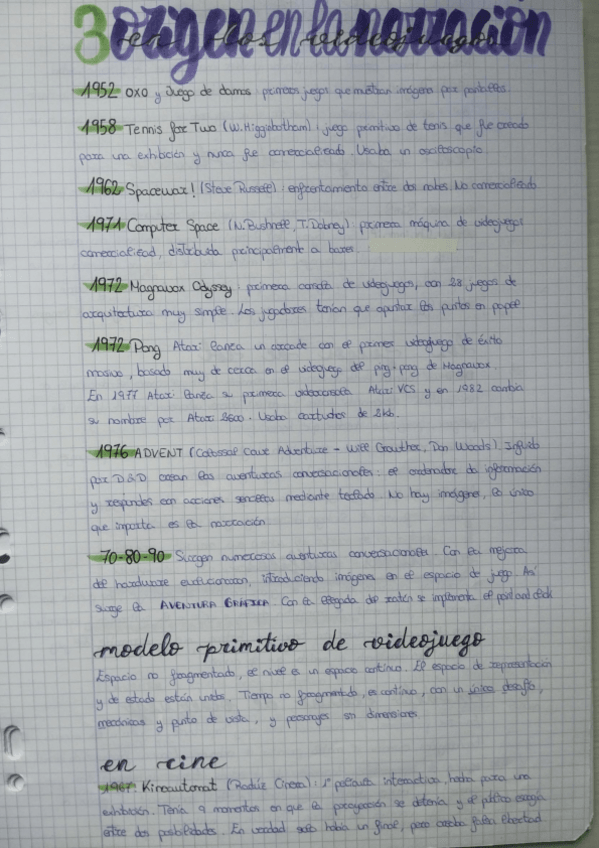 3 origen en la narración
en los videojuegos
1952 OXO y Juego de damas: primeros juegos que muestran imágenes por pantallas.
1958 Tennis for Two (W. Higginbotham): juego primitivo de tenis que fue creado
para una exhibición y nunca fue comercializado. Usaba un osciloscopio.
1962 Spacewar! (Steve Russell): enfrentamiento entre dos naves. No comercializado
1971 Computer Space (N. Bushnell, T. Dabney): primera máquina de videojuegos
comercializad, distribuida principalmente a bares.
1972 Magnavox Odyssey: primera consola de videojuegos, con 28 juegos de
arquitectura muy simple. Los jugadores tenían que apuntar los puntos en papel.
1972 Pong Atari lanza un arcade con el primer videojuego de éxito
masivo, basado muy de cerca en el videojuego de ping-pong de Magnavox.
En 1977 Atari lanza su primera videoconsola Atari VCS y en 1982 cambia
su nombre por Atari 2600. Usaba cartuchos de 2kb.
1976 ADVENT (Colossal Cave Adventure - Will Crowther, Don Woods). Influido
por D&D crean las aventuras conversacionales: el ordenador da información
y respondes con acciones sencillas mediante teclado. No hay imágenes, lo único
que importa es la narración.
70-80-90 Surgen numerosas aventuras conversacionales. Con la mejora
del hardware evolucionaron, introduciendo imágenes en el espacio de juego. Así
surge la AVENTURA GRÁFICA. Con la llegada del ratón se implementa el point and click
modelo primitivo de videojuego
Espacio no fragmentado, el nivel es un espacio continuo. El espacio de representación
y de estado están unidos. Tiempo no fragmentado, es continuo, con un único desafío,
mecánicas y punto de vista, y personajes sin dimensiones.
en cine
1967: Kinoautomat (Radúz Cinera): 1ª película interactiva, hecha para una
exhibición. Tenía 9 momentos en que la proyección se detenía y el público escogía
entre dos posibilidades. En verdad solo había un final, pero creaba falsa libertad